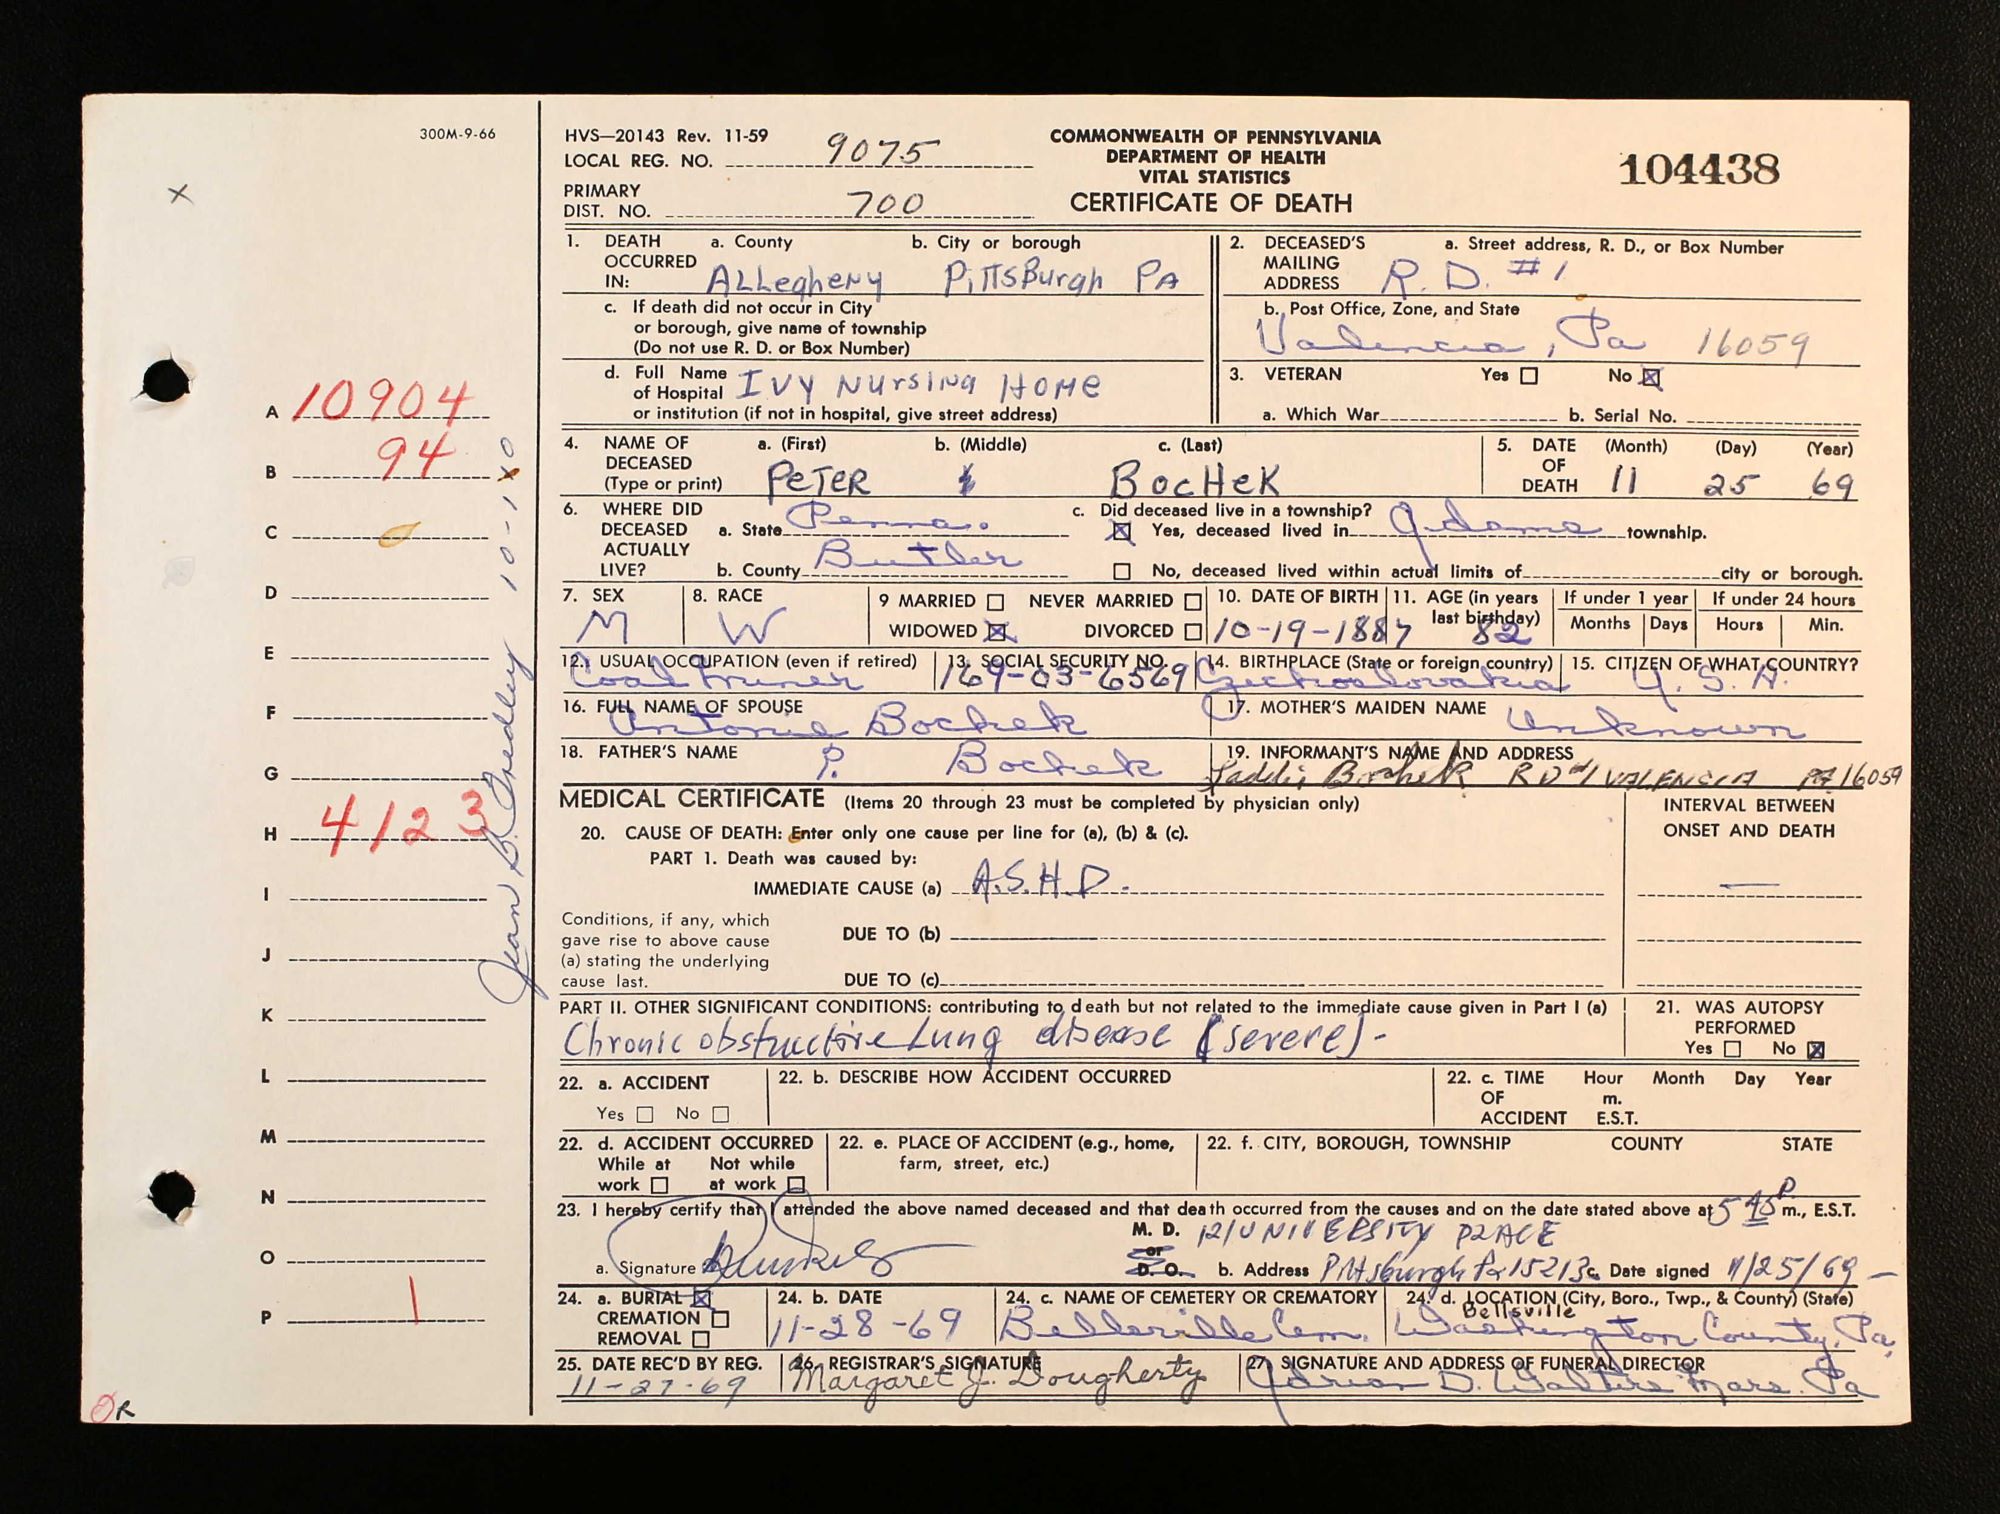 300M-9-66
HVS—20143 Rev. 11-59
LOCAL REG. NO. 9075
PRIMARY
DIST. NO. 700
COMMONWEALTH OF PENNSYLVANIA
DEPARTMENT OF HEALTH
VITAL STATISTICS
CERTIFICATE OF DEATH
104438
X
A 10904
B 94
C
D
E
F
G
H 4123
I
J
K
L
M
N
O
P 1
R
Jean B. 10-1
1. DEATH OCCURRED IN: a. County b. City or borough
ALLegheny PittsBurgh PA
c. If death did not occur in City
or borough, give name of township
(Do not use R. D. or Box Number)
d. Full Name of Hospital IVY NURSING HOME
or institution (if not in hospital, give street address)
2. DECEASED'S MAILING ADDRESS a. Street address, R. D., or Box Number
R. D. #1
b. Post Office, Zone, and State
Valencia, Pa 16059
3. VETERAN Yes ☐ No ☒
a. Which War b. Serial No.
4. NAME OF DECEASED (Type or print) a. (First) b. (Middle) c. (Last)
PETER BOCHEK
5. DATE OF DEATH (Month) (Day) (Year)
11 25 69
6. WHERE DID DECEASED ACTUALLY LIVE? a. State Penna.
b. County Butler
c. Did deceased live in a township?
☒ Yes, deceased lived in Adams township.
☐ No, deceased lived within actual limits of city or borough.
7. SEX M
8. RACE W
9 MARRIED ☐ NEVER MARRIED ☐
WIDOWED ☒ DIVORCED ☐
10. DATE OF BIRTH 10-19-1887
11. AGE (in years last birthday) 82
If under 1 year Months Days
If under 24 hours Hours Min.
12. USUAL OCCUPATION (even if retired) Coal miner
13. SOCIAL SECURITY NO. 169-03-6569
14. BIRTHPLACE (State or foreign country) Czechoslovakia
15. CITIZEN OF WHAT COUNTRY? U. S. A.
16. FULL NAME OF SPOUSE Antonie Bochek
17. MOTHER'S MAIDEN NAME Unknown
18. FATHER'S NAME P. Bochek
19. INFORMANT'S NAME AND ADDRESS
Laddie Bochek RD #1 VALENCIA PA 16059
MEDICAL CERTIFICATE (Items 20 through 23 must be completed by physician only)
INTERVAL BETWEEN
ONSET AND DEATH
20. CAUSE OF DEATH: Enter only one cause per line for (a), (b) & (c).
PART 1. Death was caused by:
IMMEDIATE CAUSE (a) A.S.H.D. —
Conditions, if any, which
gave rise to above cause
(a) stating the underlying
cause last.
DUE TO (b)
DUE TO (c)
PART II. OTHER SIGNIFICANT CONDITIONS: contributing to death but not related to the immediate cause given in Part I (a)
Chronic obstructive Lung disease (severe) -
21. WAS AUTOPSY
PERFORMED
Yes ☐ No ☒
22. a. ACCIDENT
Yes ☐ No ☐
22. b. DESCRIBE HOW ACCIDENT OCCURRED
22. c. TIME OF ACCIDENT Hour Month Day Year
m.
E.S.T.
22. d. ACCIDENT OCCURRED
While at work ☐ Not while at work ☐
22. e. PLACE OF ACCIDENT (e.g., home,
farm, street, etc.)
22. f. CITY, BOROUGH, TOWNSHIP COUNTY STATE
23. I hereby certify that I attended the above named deceased and that death occurred from the causes and on the date stated above at 5 45 P m., E.S.T.
a. Signature M. D. or D. O. 121 UNIVERSITY PLACE
b. Address Pittsburgh Pa 15213 c. Date signed 11/25/69 -
24. a. BURIAL ☒
CREMATION ☐
REMOVAL ☐
24. b. DATE
11-28-69
24. c. NAME OF CEMETERY OR CREMATORY
Bellsville Cem.
24. d. LOCATION (City, Boro., Twp., & County) (State)
Bellsville
Washington County, Pa.
25. DATE REC'D BY REG.
11-27-69
26. REGISTRAR'S SIGNATURE
Margaret J. Dougherty
27. SIGNATURE AND ADDRESS OF FUNERAL DIRECTOR
Adrian D. Walters Mars. Pa